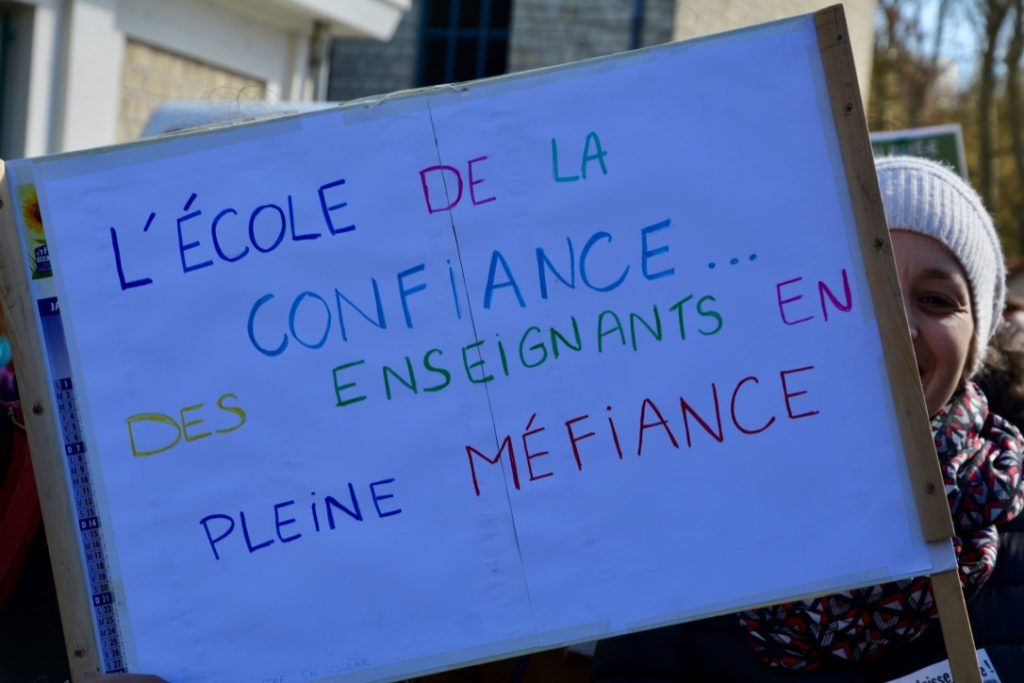 L'ÉCOLE DE LA
CONFIANCE...
DES ENSEIGNANTS EN
PLEINE MÉFIANCE
EN COLÈRE